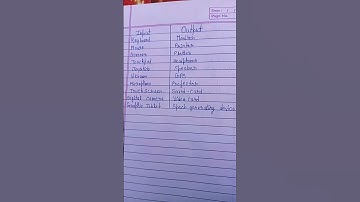 Date :
Page No.
Input Output
Keyboard Monitor
Mouse Printer
Scanner Plotter
Touchpad Headphones
Joystick Speakers
GPS
Microphone Projector
Touch Screen Sound-Card
Digital camera Video card
Graphic Tablet Speech generating device